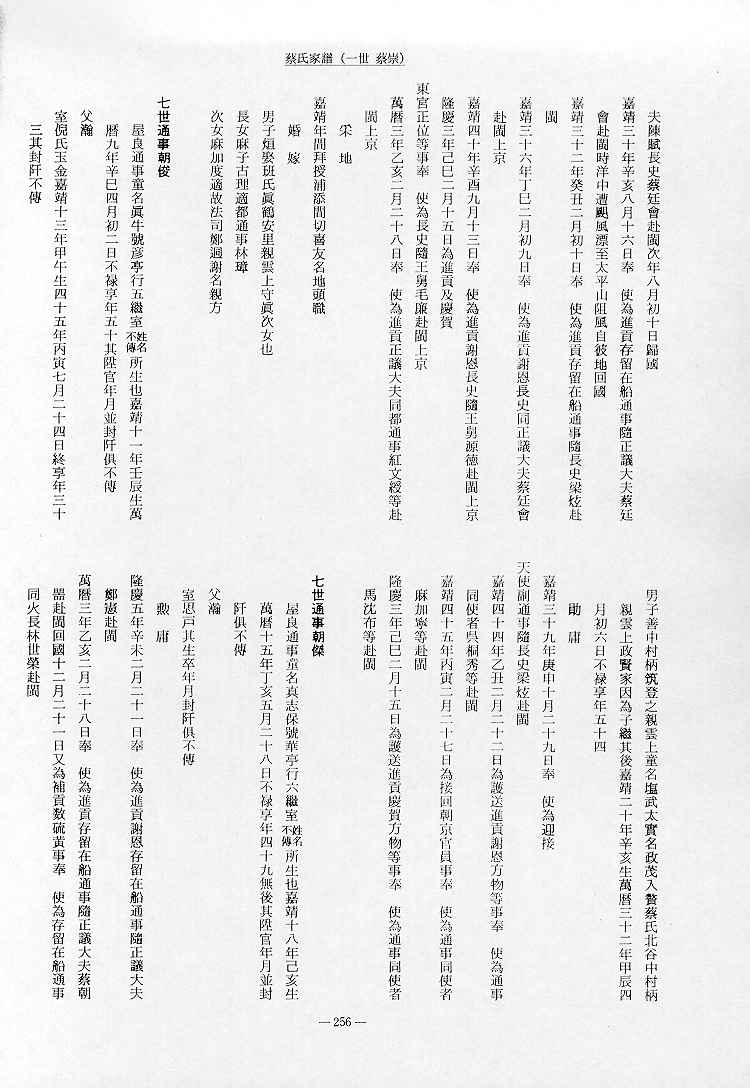 蔡氏家譜（一世 蔡崇）
夫陳賦長史蔡廷會赴閩次年八月初十日歸國
嘉靖三十年辛亥八月十六日奉　使為進貢存留在船通事隨正議大夫蔡廷
會赴閩時洋中遭颶風漂至太平山阻風自彼地回國
嘉靖三十二年癸丑二月初十日奉　使為進貢存留在船通事隨長史梁炫赴
閩
嘉靖三十六年丁巳二月初九日奉　使為進貢謝恩長史同正議大夫蔡廷會
赴閩上京
嘉靖四十年辛酉九月十三日奉　使為進貢謝恩長史隨王舅源德赴閩上京
隆慶三年己巳二月十五日為進貢及慶賀
東宮正位等事奉　使為長史隨王舅毛廉赴閩上京
萬曆三年乙亥二月二十八日奉　使為進貢正議大夫同都通事紅文綬等赴
閩上京
采地
嘉靖年間拜授浦添間切喜友名地頭職
婚嫁
男子烜娶班氏眞鶴安里親雲上守眞次女也
長女麻子古理適都通事林璋
次女麻加度適故法司鄭迵謝名親方
七世通事朝俊
屋良通事童名眞牛號彦亭行五繼室姓名不傳所生也嘉靖十一年壬辰生萬
曆九年辛巳四月初二日不禄享年五十其陞官年月並封阡俱不傳
父瀚
室倪氏玉金嘉靖十三年甲午生四十五年丙寅七月二十四日終享年三十
三其封阡不傳
男子善中村柄筑登之親雲上童名塩武太實名政茂入贅蔡氏北谷中村柄
親雲上政賢家因為子繼其後嘉靖二十年辛亥生萬曆三十二年甲辰四
月初六日不禄享年五十四
勛庸
嘉靖三十九年庚申十月二十九日奉　使為迎接
天使副通事隨長史梁炫赴閩
嘉靖四十四年乙丑二月二十二日為護送進貢謝恩方物等事奉　使為通事
同使者吳桐秀等赴閩
嘉靖四十五年丙寅二月二十七日為接回朝京官員事奉　使為通事同使者
麻加寧等赴閩
隆慶三年己巳二月十五日為護送進貢慶賀方物等事奉　使為通事同使者
馬沈布等赴閩
七世通事朝傑
屋良通事童名真志保號華亭行六繼室姓名不傳所生也嘉靖十八年己亥生
萬曆十五年丁亥五月二十八日不禄享年四十九無後其陞官年月並封
阡俱不傳
父瀚
室思戸其生卒年月封阡俱不傳
勲庸
隆慶五年辛未二月二十一日奉　使為進貢謝恩存留在船通事隨正議大夫
鄭憲赴閩
萬曆三年乙亥二月二十八日奉　使為進貢存留在船通事隨正議大夫蔡朝
噐赴閩回國十二月二十一日又為補貢数硫黃事奉　使為存留在船通事
同火長林世榮赴閩
― 256 ―